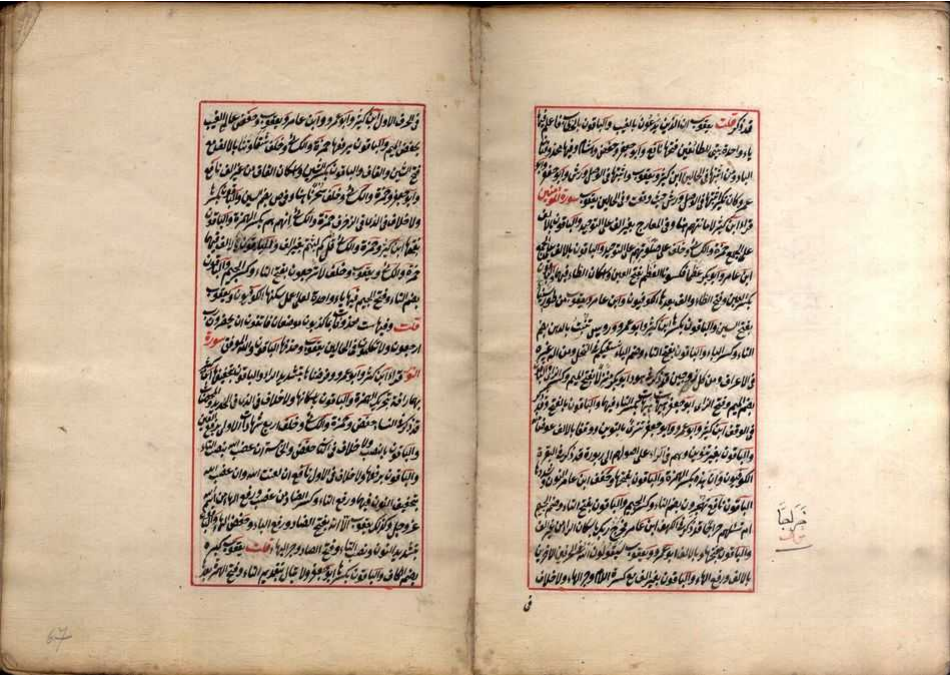 قد ذكر قلت يعقوب ان الذين يدعون بالغيب والباقون بالخطاب فاعلم فيها
ياء واحدة بيتي للطائفين فتحها نافع وابو جعفر وحفص وهشام وفيها محذوفتان
الباد ومن اثبتها في الحالين ابن كثير ويعقوب واثبتها في الوصل ورش وابو جعفر وابو
عمرو وكان نكير اثبتها في الوصل ورش حيث وقعت وفي الحالين يعقوب سورة المؤمنين
قرأ ابن كثير لاماناتهم هنا وفي المعارج بغير الف على التوحيد والباقون بالالف
على الجمع حمزة والكسائي وخلف على صلوتهم على التوحيد والباقون بالالف على الجمع
ابن عامر وابو بكر عظما فكسونا العظم بفتح العين واسكان الظاء فيهما والباقون
بكسر العين وفتح الظاء والف بعدها الكوفيون وابن عامر ويعقوب من طور سيناء
بفتح السين والباقون بكسرها ابن كثير وابو عمرو ورويس تنبت بالدهن بضم
التاء وكسر الباء والباقون بفتح التاء وضم الباء نسقيكم في النحل ومن اله غيره
في الاعراف ومن كل زوجين قد ذكر في هود ابو بكر منزلا بفتح الميم وكسر الزاي والباقون
بضم الميم وفتح الزاي ابو جعفر هيهات هيهات بكسر التاء فيهما والباقون بالفتح وقد ذكر
في الوقف ابن كثير وابو عمرو وابو جعفر تترى بالتنوين ووقفا بالالف عوضا منه
والباقون بغير تنوين وهم في الراء على اصولهم الى ربوة قد ذكر في البقرة
الكوفيون وان هذه بكسر الهمزة والباقون بفتحها وخفف ابن عامر النون وشددها
الباقون نافع تهجرون بضم التاء وكسر الجيم والباقون بفتح التاء وضم الجيم
ام تسئلهم خراجا قد ذكر في الكهف ابن عامر فخرج ربك باسكان الراء من غير الف
والباقون بفتحها وبالالف ابو عمرو ويعقوب سيقولون الله في الحرفين الاخيرين
بالالف ورفع الهاء والباقون بغير الف مع كسرة اللام وجر الهاء ولا خلاف
في
خرجا
في الحرف الاول ابن كثير وابو عمرو وابن عامر ويعقوب وحفص عالم الغيب
بخفض الميم والباقون برفعها حمزة والكسائي وخلف شقاوتنا بالالف مع
فتح الشين والقاف والباقون بكسر الشين واسكان القاف من غير الف نافع
وابو جعفر وحمزة والكسائي وخلف سخريا هنا وفي ص بضم السين والباقون بكسرها
ولا خلاف في الذي في الزخرف حمزة والكسائي انهم هم بكسر الهمزة والباقون
بفتحها ابن كثير وحمزة والكسائي قل كم لبثتم بغير الف والباقون قال بالالف
حمزة والكسائي ويعقوب وخلف لا ترجعون بفتح التاء وكسر الجيم والباقون
بضم التاء وفتح الجيم فيها ياء واحدة لعلي اعمل سكنها الكوفيون ويعقوب
قلت وفيها ست محذوفات بما كذبون موضعان فاتقون ان يحضرون رب
ارجعون ولا تكلمون في الحالين يعقوب وحذفها الباقون والله الموفق سورة
النور قرأ ابن كثير وابو عمرو وفرضناها بتشديد الراء والباقون بتخفيفها ابن كثير
بهما رأفة بتحريك الهمزة والباقون باسكانها ولا خلاف في الذي في الحديد
قد ذكر في النساء حفص وحمزة والكسائي وخلف اربع شهادات الاول برفع العين
والباقون بالنصب ولا خلاف في الثاني حفص والخامسة ان غضب الله بنصب التاء
والباقون برفعها ولا خلاف في الاول نافع ان لعنت الله وان غضب الله
بتخفيف النون فيهما ورفع التاء وكسر الضاد من غضب ورفع الهاء من اسم الله
عز وجل وكذلك يعقوب الا انه بفتح الضاد ورفع الباء وخفض الهاء والباقون
بتشديد النون ونصب التاء وفتح الضاد وجر الهاء قلت يعقوب كبره
بضم الكاف والباقون بكسرها ابو جعفر ولا يتال بتقديم التاء وفتح الهمزة
67